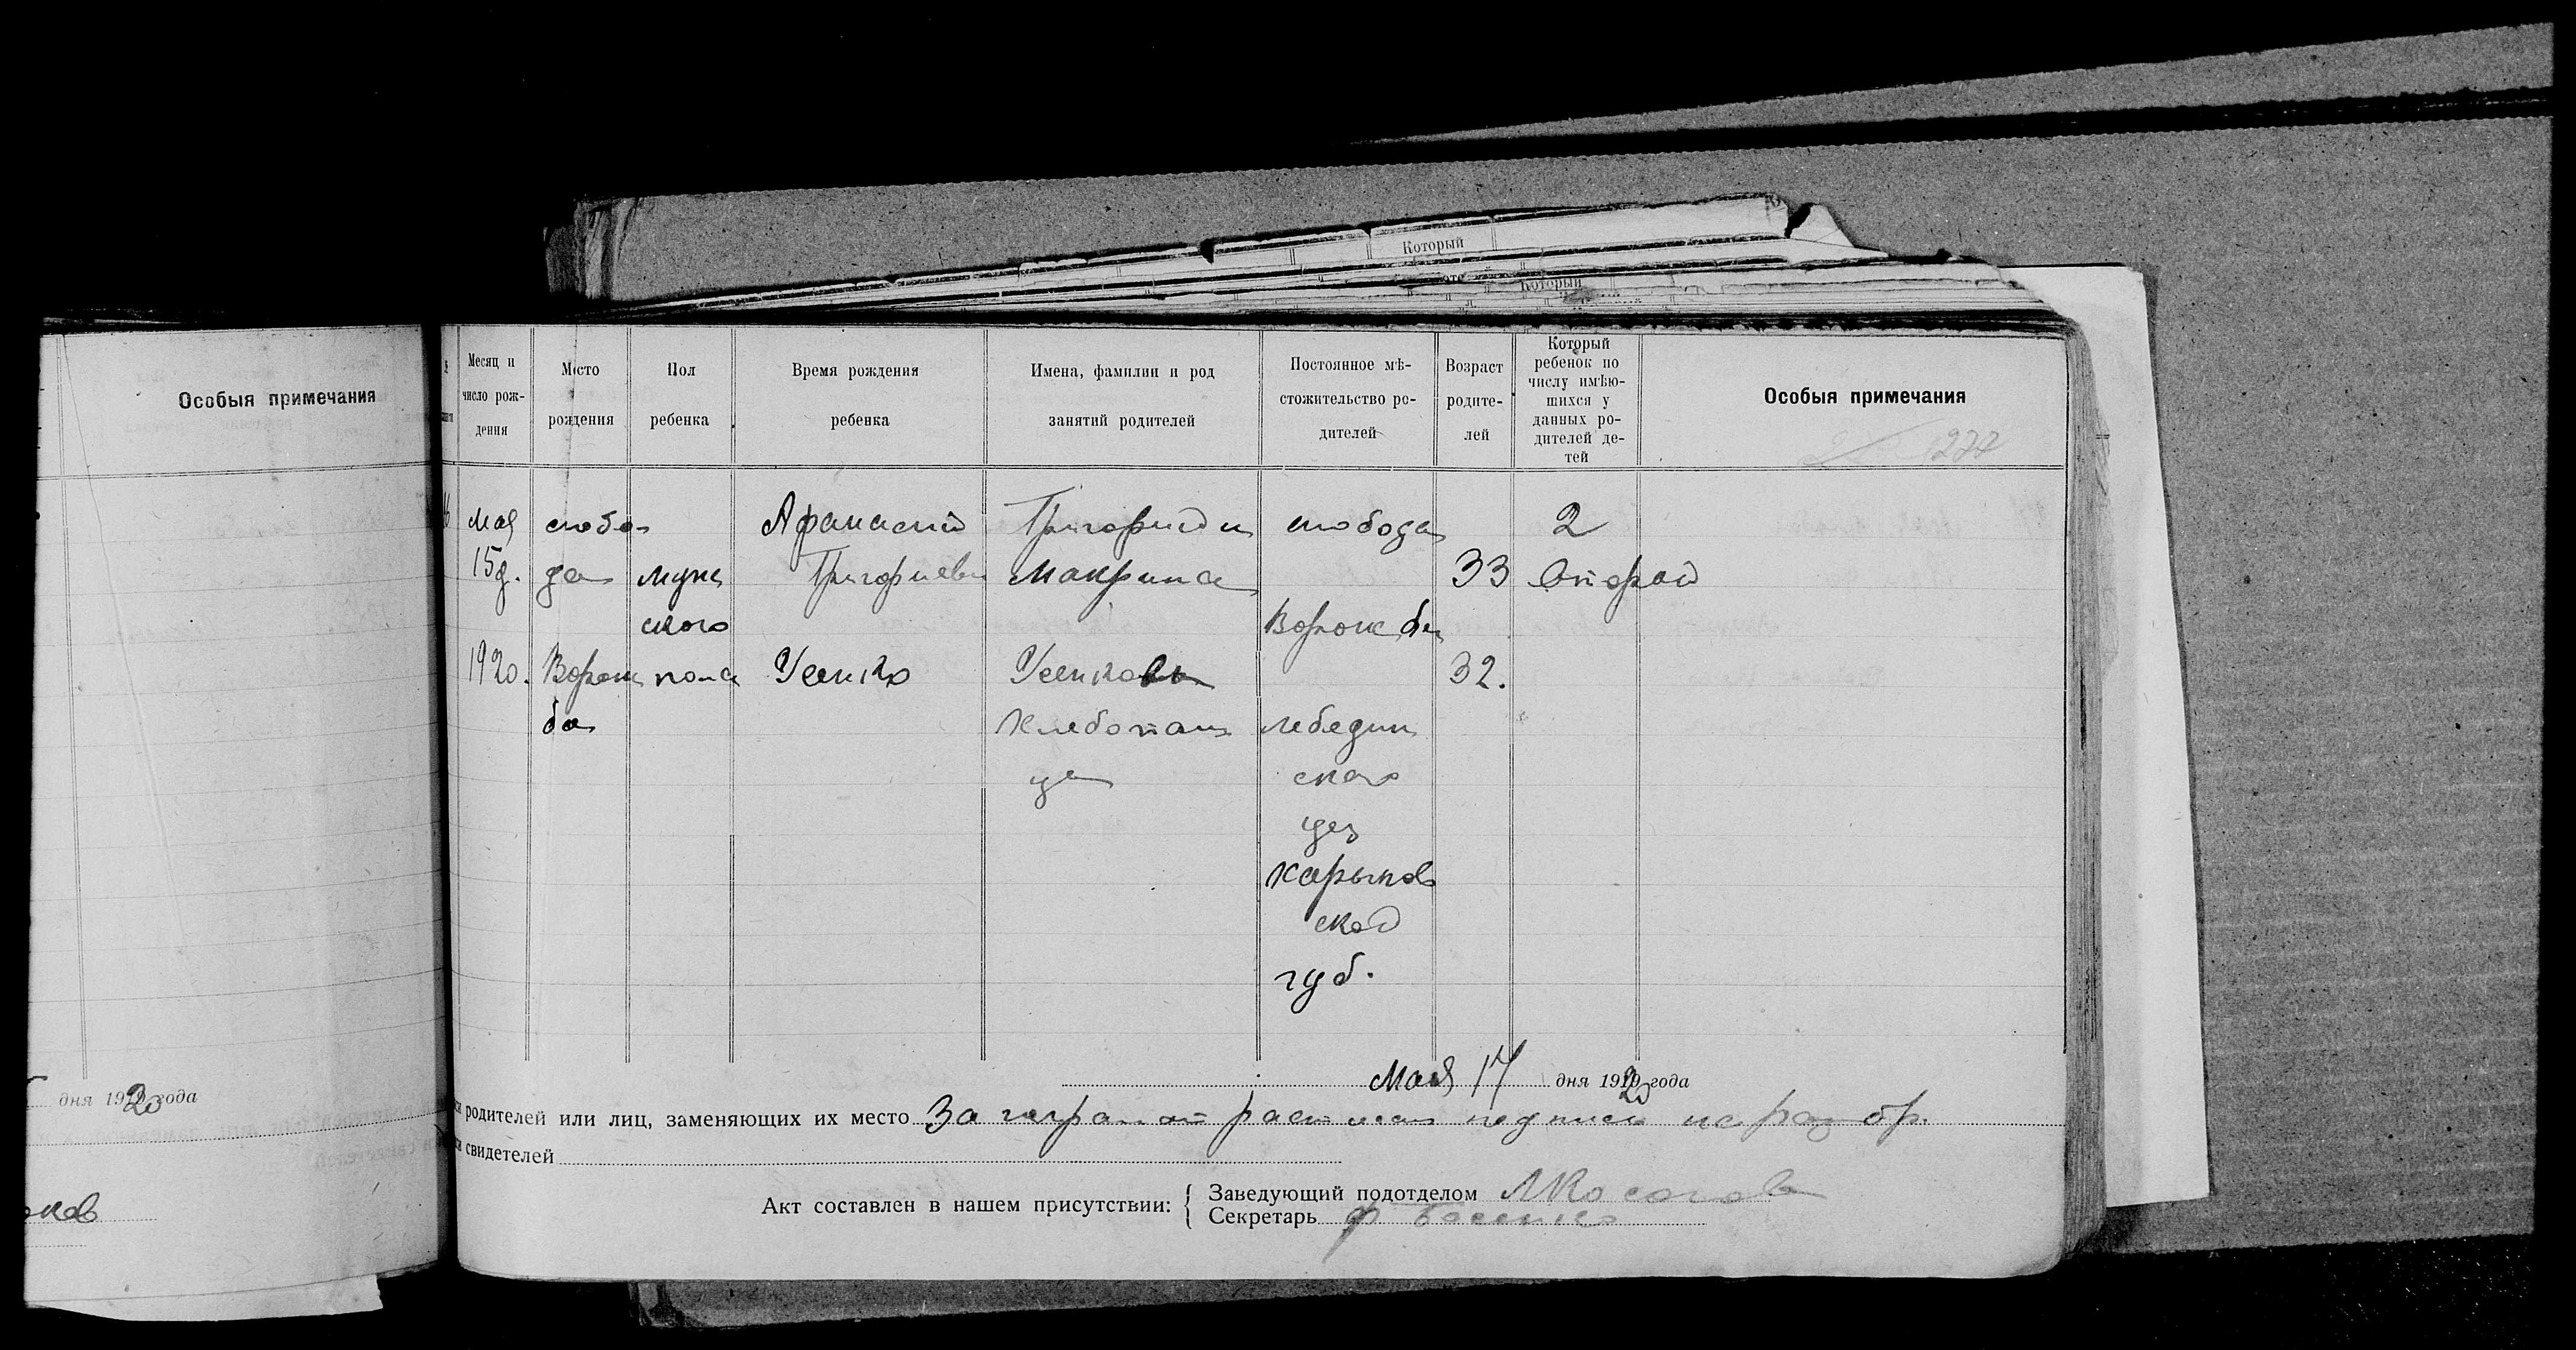 Который
Который
Особыя примечания
дня 1920 года
Месяц и число рождения
Место рождения
Пол ребенка
Время рождения ребенка
Имена, фамилии и род занятий родителей
Постоянное мѣстожительство родителей
Возраст родителей
Который ребенок по числу имѣющихся у данных родителей детей
Особыя примечания
277
мая
15 д.
1920.
слобо
да
Ворож
ба
мужс
ского
пола
Афанасий
Григориевич
Усенко
Григорий и
Макрина
Усенковы
Хлебопаш
ца
слобода
Ворожба
лебедин
ского
уез
харьков
ской
губ.
33
32.
2
второй
мая 17 дня 1920 года
родителей или лиц, заменяющих их место За неграмот
свидетелей
Акт составлен в нашем присутствии:
Заведующий подотделом
Секретарь